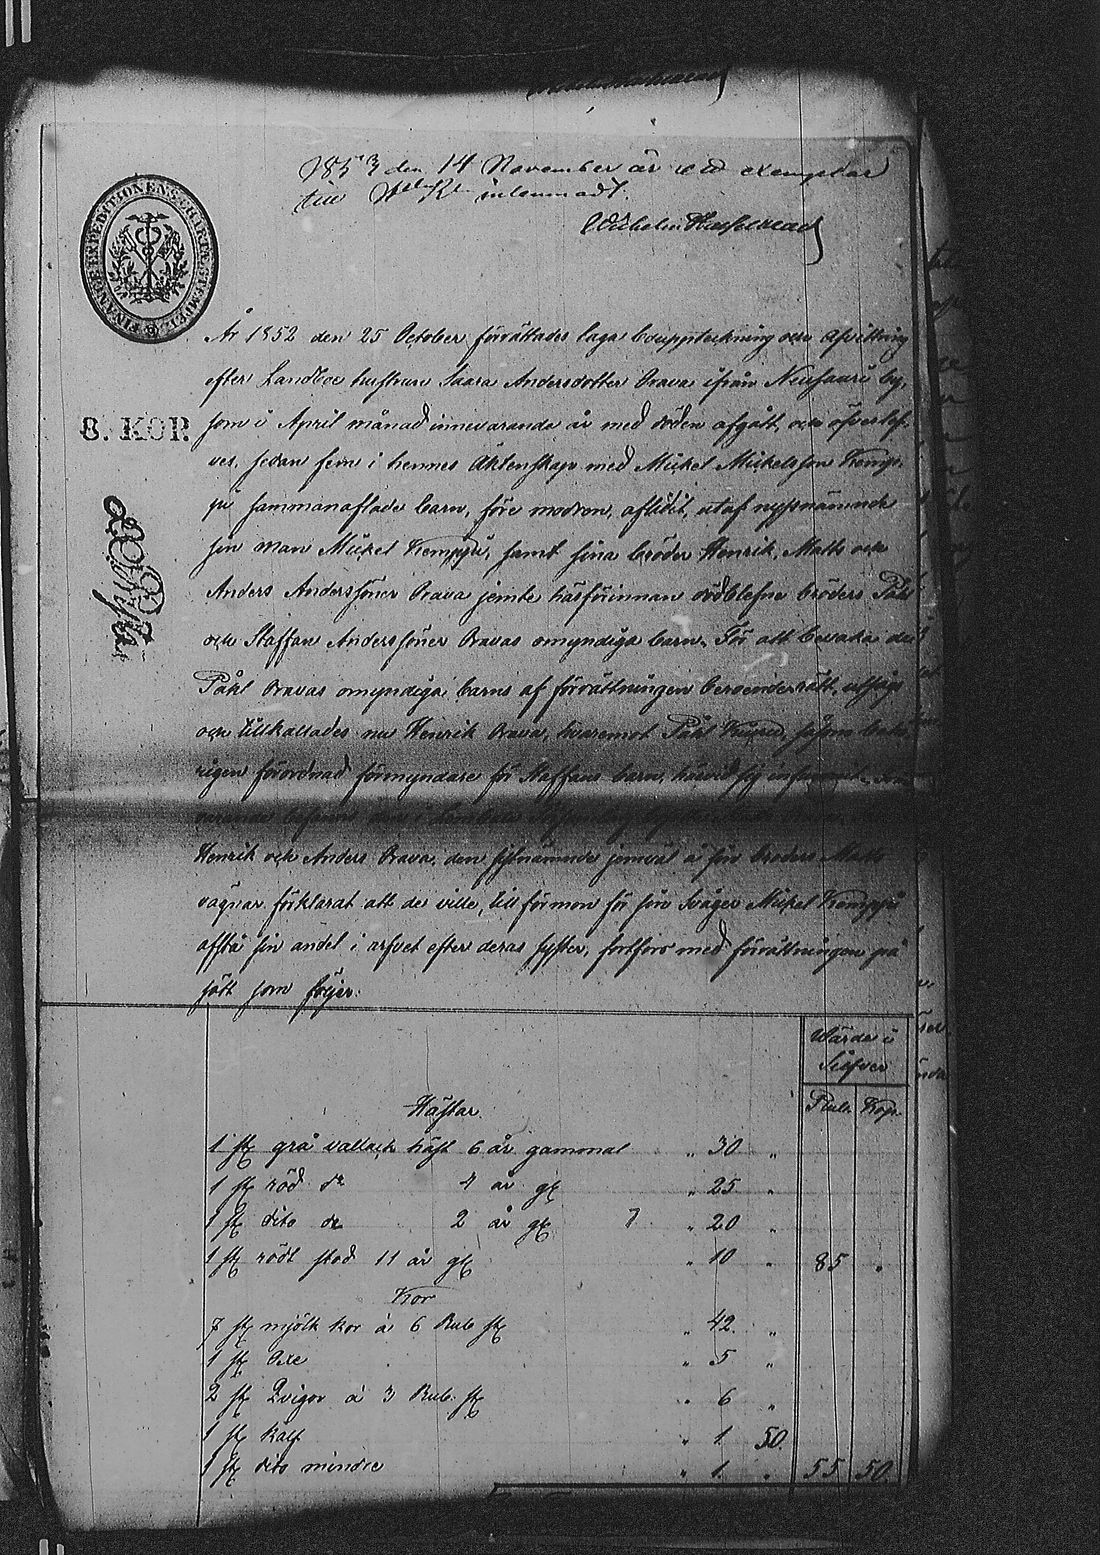 1853 den 14 November är ett exemplar
till inlemnadt.
FINANCE EXPEDITIONEN CHARTÆ STEMPEL
År 1852 den 25 October förrättades laga bouppteckning och afvittring
efter Landboe hustrun Saara Andersdotter Orava ifrån by,
som i April månad innevarande år med döden afgått, och öfverlef-
8. KOP.
ves, sedan fem i hennes äktenskap med Mickel Mickelsson Kemp-
pi sammanaflade barn, före modren, aflidit, utaf nyssnämnde
sin man Mickel Kemppi, samt sina bröder Henrik, Matts och
Anders Anderssöner Orava jemte härförinnan dödblefne bröders Påhl
och Staffan Anderssöner Oravas omyndiga barn. För att bevaka de
Påhl Oravas omyndiga barns af förrättningen beroende rätt,
och tillkallades nu Henrik Orava, hvaremot Påhl såsom behö-
rigen förordnad förmyndare för Staffans barn, härvid sig
varande
Henrik och Anders Orava, den sistnämnde jemväl å sin broders Matts
vägnar förklarat att de ville, till förmon för sin Svåger Mickel Kemppi
afstå sin andel i arfvet efter deras syster, fortfors med förrättningen på
sätt som följer:
Wärde i
Silfver
Rub. Kop.
Hästar
1 st grå vallack häst 6 år gammal " 30 "
1 st röd do 4 år gl " 25 "
1 st dito do 2 år gl " 20 "
1 st rödt stod 11 år gl " 10 " 85 "
Kor
7 st mjölk kor à 6 Rub st " 42 "
1 st Oxe " 5 "
2 st Qvigor à 3 Rub. st " 6 "
1 st Kalf " 1 50
1 st dito mindre " 1 " 55 50